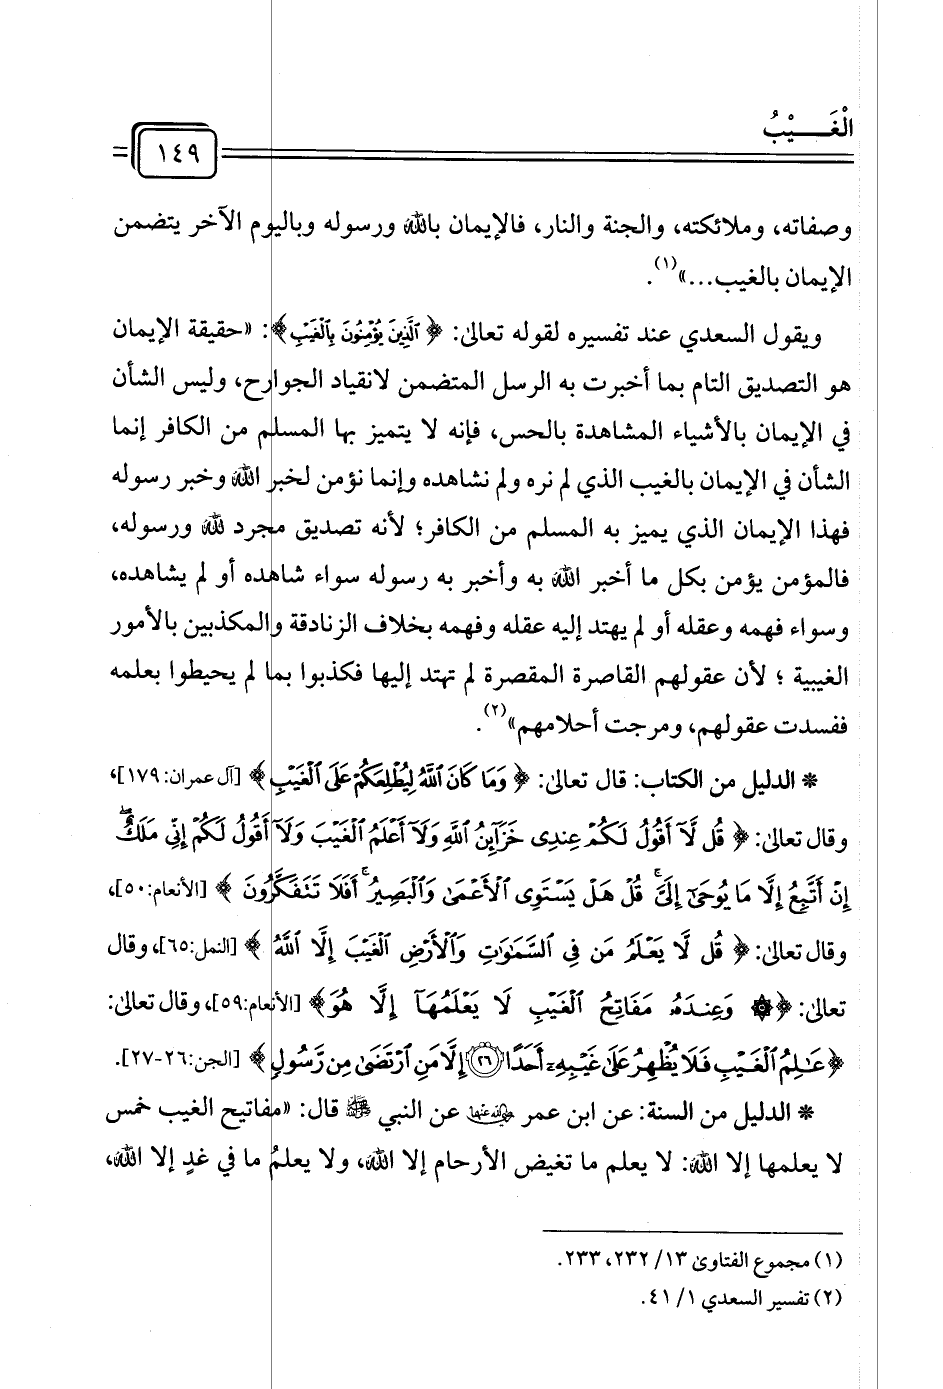 الْغَـــيْبُ
١٤٩
وصفاته، وملائكته، والجنة والنار، فالإيمان بالله ورسوله وباليوم الآخر يتضمن
الإيمان بالغيب...»(١).
ويقول السعدي عند تفسيره لقوله تعالىٰ: ﴿ ٱلَّذِينَ يُؤْمِنُونَ بِٱلْغَيْبِ﴾: «حقيقة الإيمان
هو التصديق التام بما أخبرت به الرسل المتضمن لانقياد الجوارح، وليس الشأن
في الإيمان بالأشياء المشاهدة بالحس، فإنه لا يتميز بها المسلم من الكافر إنما
الشأن في الإيمان بالغيب الذي لم نره ولم نشاهده وإنما نؤمن لخبر الله وخبر رسوله
فهذا الإيمان الذي يميز به المسلم من الكافر؛ لأنه تصديق مجرد لله ورسوله،
فالمؤمن يؤمن بكل ما أخبر الله به وأخبر به رسوله سواء شاهده أو لم يشاهده،
وسواء فهمه وعقله أو لم يهتد إليه عقله وفهمه بخلاف الزنادقة والمكذبين بالأمور
الغيبية ؛ لأن عقولهم القاصرة المقصرة لم تهتد إليها فكذبوا بما لم يحيطوا بعلمه
ففسدت عقولهم، ومرجت أحلامهم»(٢).
* الدليل من الكتاب: قال تعالىٰ: ﴿ وَمَا كَانَ ٱللَّهُ لِيُطْلِعَكُمْ عَلَى ٱلْغَيْبِ ﴾ [آل عمران: ١٧٩]،
وقال تعالىٰ: ﴿ قُل لَّآ أَقُولُ لَكُمْ عِندِى خَزَآئِنُ ٱللَّهِ وَلَآ أَعْلَمُ ٱلْغَيْبَ وَلَآ أَقُولُ لَكُمْ إِنِّى مَلَكٌ ۖ
إِنْ أَتَّبِعُ إِلَّا مَا يُوحَىٰٓ إِلَىَّ ۚ قُلْ هَلْ يَسْتَوِى ٱلْأَعْمَىٰ وَٱلْبَصِيرُ ۚ أَفَلَا تَتَفَكَّرُونَ ﴾ [الأنعام: ٥٠]،
وقال تعالىٰ: ﴿ قُل لَّا يَعْلَمُ مَن فِى ٱلسَّمَٰوَٰتِ وَٱلْأَرْضِ ٱلْغَيْبَ إِلَّا ٱللَّهُ ﴾ [النمل: ٦٥]، وقال
تعالىٰ: ﴿۞ وَعِندَهُۥ مَفَاتِحُ ٱلْغَيْبِ لَا يَعْلَمُهَآ إِلَّا هُوَ﴾ [الأنعام: ٥٩]، وقال تعالىٰ:
﴿ عَٰلِمُ ٱلْغَيْبِ فَلَا يُظْهِرُ عَلَىٰ غَيْبِهِۦٓ أَحَدًا ٢٦ إِلَّا مَنِ ٱرْتَضَىٰ مِن رَّسُولٍ ﴾ [الجن: ٢٦-٢٧].
* الدليل من السنة: عن ابن عمر رضي الله عنهما عن النبي ﷺ قال: «مفاتيح الغيب خمس
لا يعلمها إلا الله: لا يعلم ما تغيض الأرحام إلا الله، ولا يعلمُ ما في غدٍ إلا الله،
(١) مجموع الفتاوىٰ ١٣/ ٢٣٢، ٢٣٣.
(٢) تفسير السعدي ١/ ٤١.